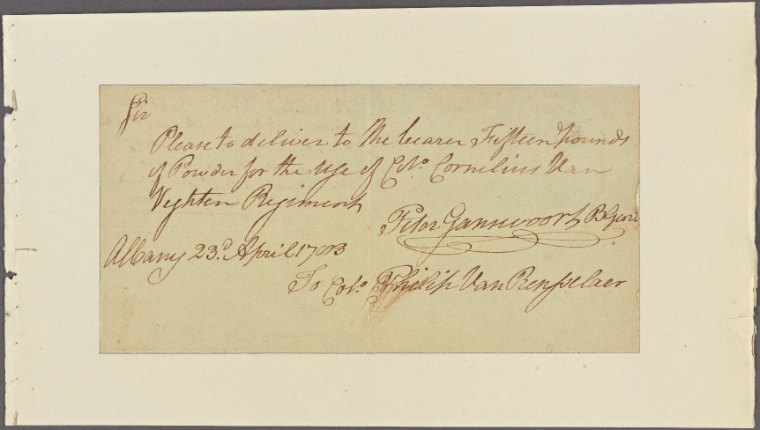 Sir
Please to deliver to the bearer Fifteen pounds
of Powder for the Use of Colo. Cornelius Van
Veghten Regiment
Peter Gansevoort B Genl
Albany 23d. April 1783
To Colo. Philip Van Rensselaer